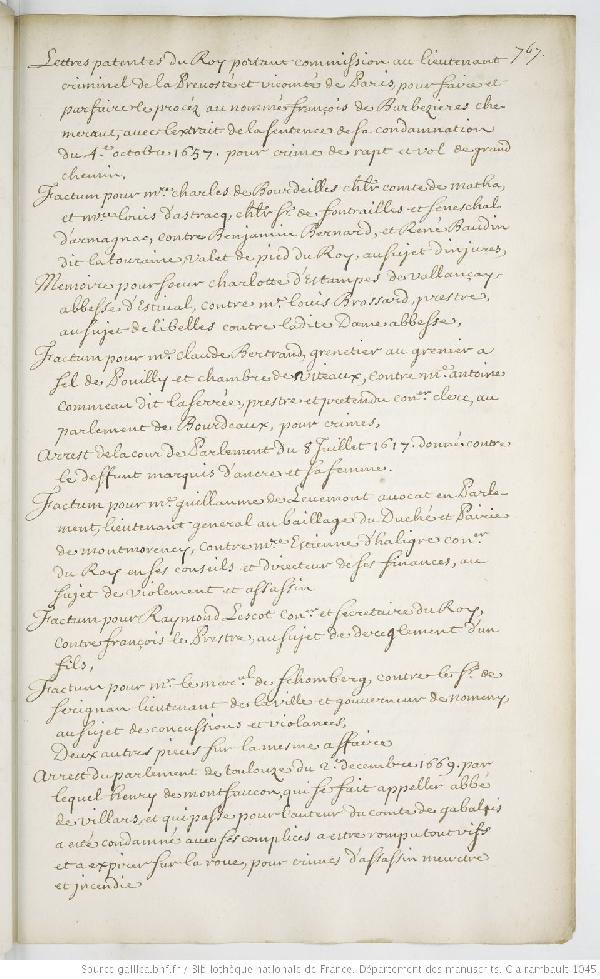 767.
Lettres patentes du Roy portant commission au lieutenant
criminel de la Prevosté et vicomté de Paris, pour faire et
parfaire le procéz au nommé françois de Barbezieres che-
meraut, avec l'extrait de la sentence de sa condamnation
du 4.e octobre 1657. pour crime de rapt et vol de grand
chemin.
Factum pour mre charles de Bourdeilles chlr comte de matha,
et mre louis d'astracq, chlr sr. de fontrailles et seneschal
d'armagnac, contre Benjamin Bernard, et René Baudin
dit la touraine, valet de pied du Roy, au sujet d'injures,
Memoire pour soeur charlotte d'Estampes de vallançay,
abbesse d'Estival, contre mre louis Brossard, prestre,
au sujet de libelles contre ladite Dame abbesse,
Factum pour me. claude Bertrand, grenetier au grenier a
sel de Pouilly et chambre de viteaux, contre me. antoine
commeau dit laserrée, prestre et pretendu coner clerc, au
parlement de Bourdeaux, pour crimes,
Arrest de la cour de Parlement du 8 Juillet 1617. donné contre
le deffunt marquis d'ancre et sa femme.
Factum pour me. guillaume de Levemont avocat en Parle-
ment, lieutenant general au baillage du Duché et Pairie
de montmorency, contre mre Estienne d'haligre coner
du Roy en ses conseils et directeur de ses finances, au
sujet de violement et assassin
Factum pour Raymond Lescot coner et secretaire du Roy,
contre françois le Prestre, au sujet de dereglement d'un
fils,
Factum pour mr. le mareal de schomberg, contre le sr. de
serignan lieutenant de la ville et gouverneur de nomeny,
au sujet de concussions et violances,
Deux autres pieces sur la mesme affaire
Arrest du parlement de toulouze du 2.e decembre 1669. par
lequel henry de montfaucon, qui se fait appeller abbé
de villars, et qui passe pour l'auteur du comte de gabalis
a eté condamné avec ses complices a etre rompu tout vifs
et a expirer sur la roue, pour crimes d'assassin meurtre
et incendie
Source gallica.bnf.fr / Bibliothèque nationale de France. Département des manuscrits. Clairambault 1045